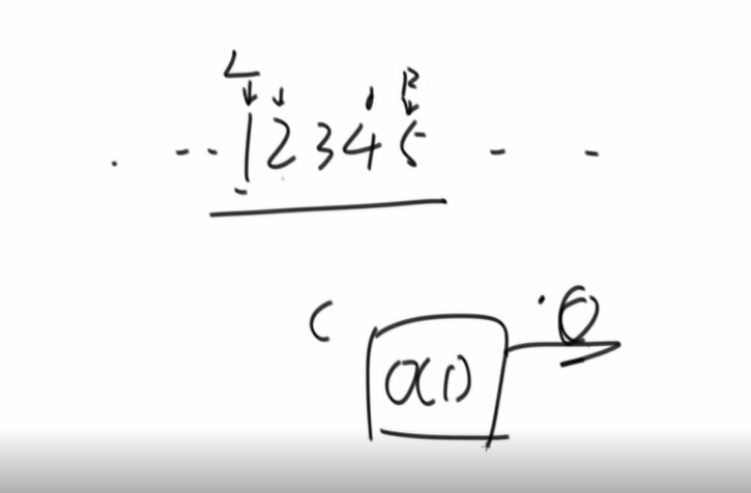 L R
. - - 1 2 3 4 5 - -
C O(1) θ